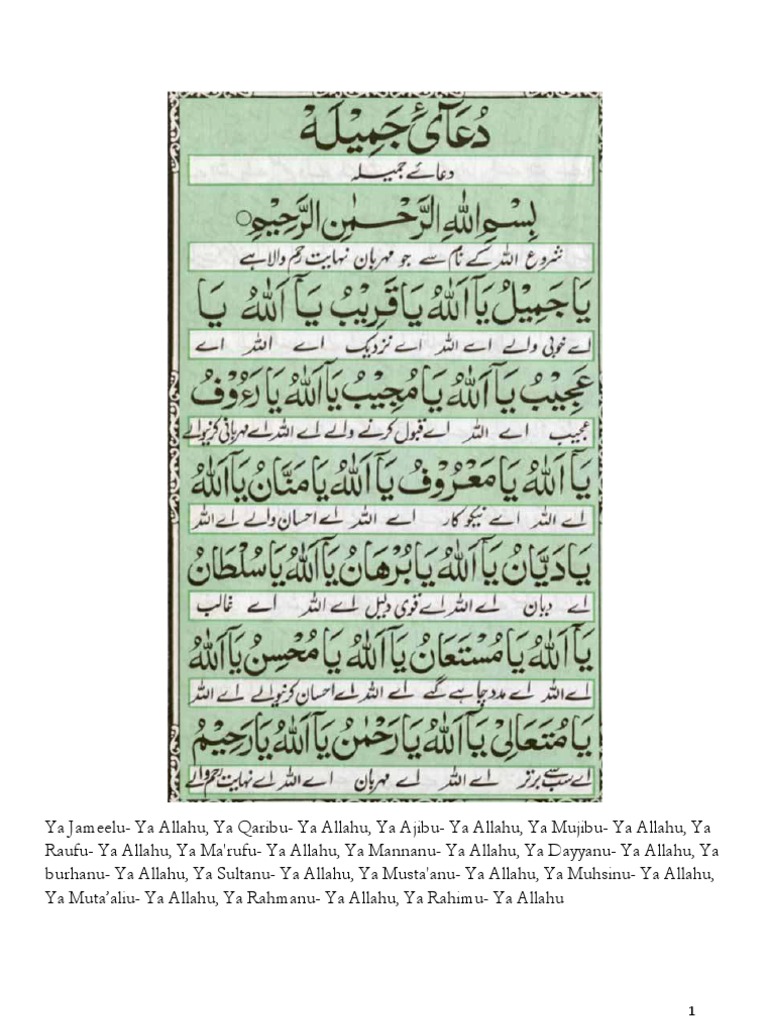 دُعَآئِ جَمِيْلَهْ
دعائے جمیلہ
بِسْمِ اللهِ الرَّحْمٰنِ الرَّحِيْمِ○
شروع اللہ کے نام سے جو مہربان نہایت رحم والا ہے
يَا جَمِيْلُ يَآ اَللهُ يَا قَرِيْبُ يَآ اَللهُ يَا
اے خوبی والے اے اللہ اے نزدیک اے اللہ اے
عَجِيْبُ يَآ اَللهُ يَا مُجِيْبُ يَآ اَللهُ يَا رَءُوْفُ
عجیب اے اللہ اے قبول کرنے والے اے اللہ اے مہربانی کرنیوالے
يَآ اَللهُ يَا مَعْرُوْفُ يَآ اَللهُ يَا مَنَّانُ يَآ اَللهُ
اے اللہ اے نیکوکار اے اللہ اے احسان والے اے اللہ
يَا دَيَّانُ يَآ اَللهُ يَا بُرْهَانُ يَآ اَللهُ يَا سُلْطَانُ
اے دیان اے اللہ اے قوی دلیل اے اللہ اے غالب
يَآ اَللهُ يَا مُسْتَعَانُ يَآ اَللهُ يَا مُحْسِنُ يَآ اَللهُ
اے اللہ اے مدد چاہے گئے اے اللہ اے احسان کرنیوالے اے اللہ
يَا مُتَعَالِيْ يَآ اَللهُ يَا رَحْمٰنُ يَآ اَللهُ يَا رَحِيْمُ
اے سب سے برتر اے اللہ اے مہربان اے اللہ اے نہایت رحم والے
Ya Jameelu- Ya Allahu, Ya Qaribu- Ya Allahu, Ya Ajibu- Ya Allahu, Ya Mujibu- Ya Allahu, Ya
Raufu- Ya Allahu, Ya Ma'rufu- Ya Allahu, Ya Mannanu- Ya Allahu, Ya Dayyanu- Ya Allahu, Ya
burhanu- Ya Allahu, Ya Sultanu- Ya Allahu, Ya Musta'anu- Ya Allahu, Ya Muhsinu- Ya Allahu,
Ya Muta’aliu- Ya Allahu, Ya Rahmanu- Ya Allahu, Ya Rahimu- Ya Allahu
1